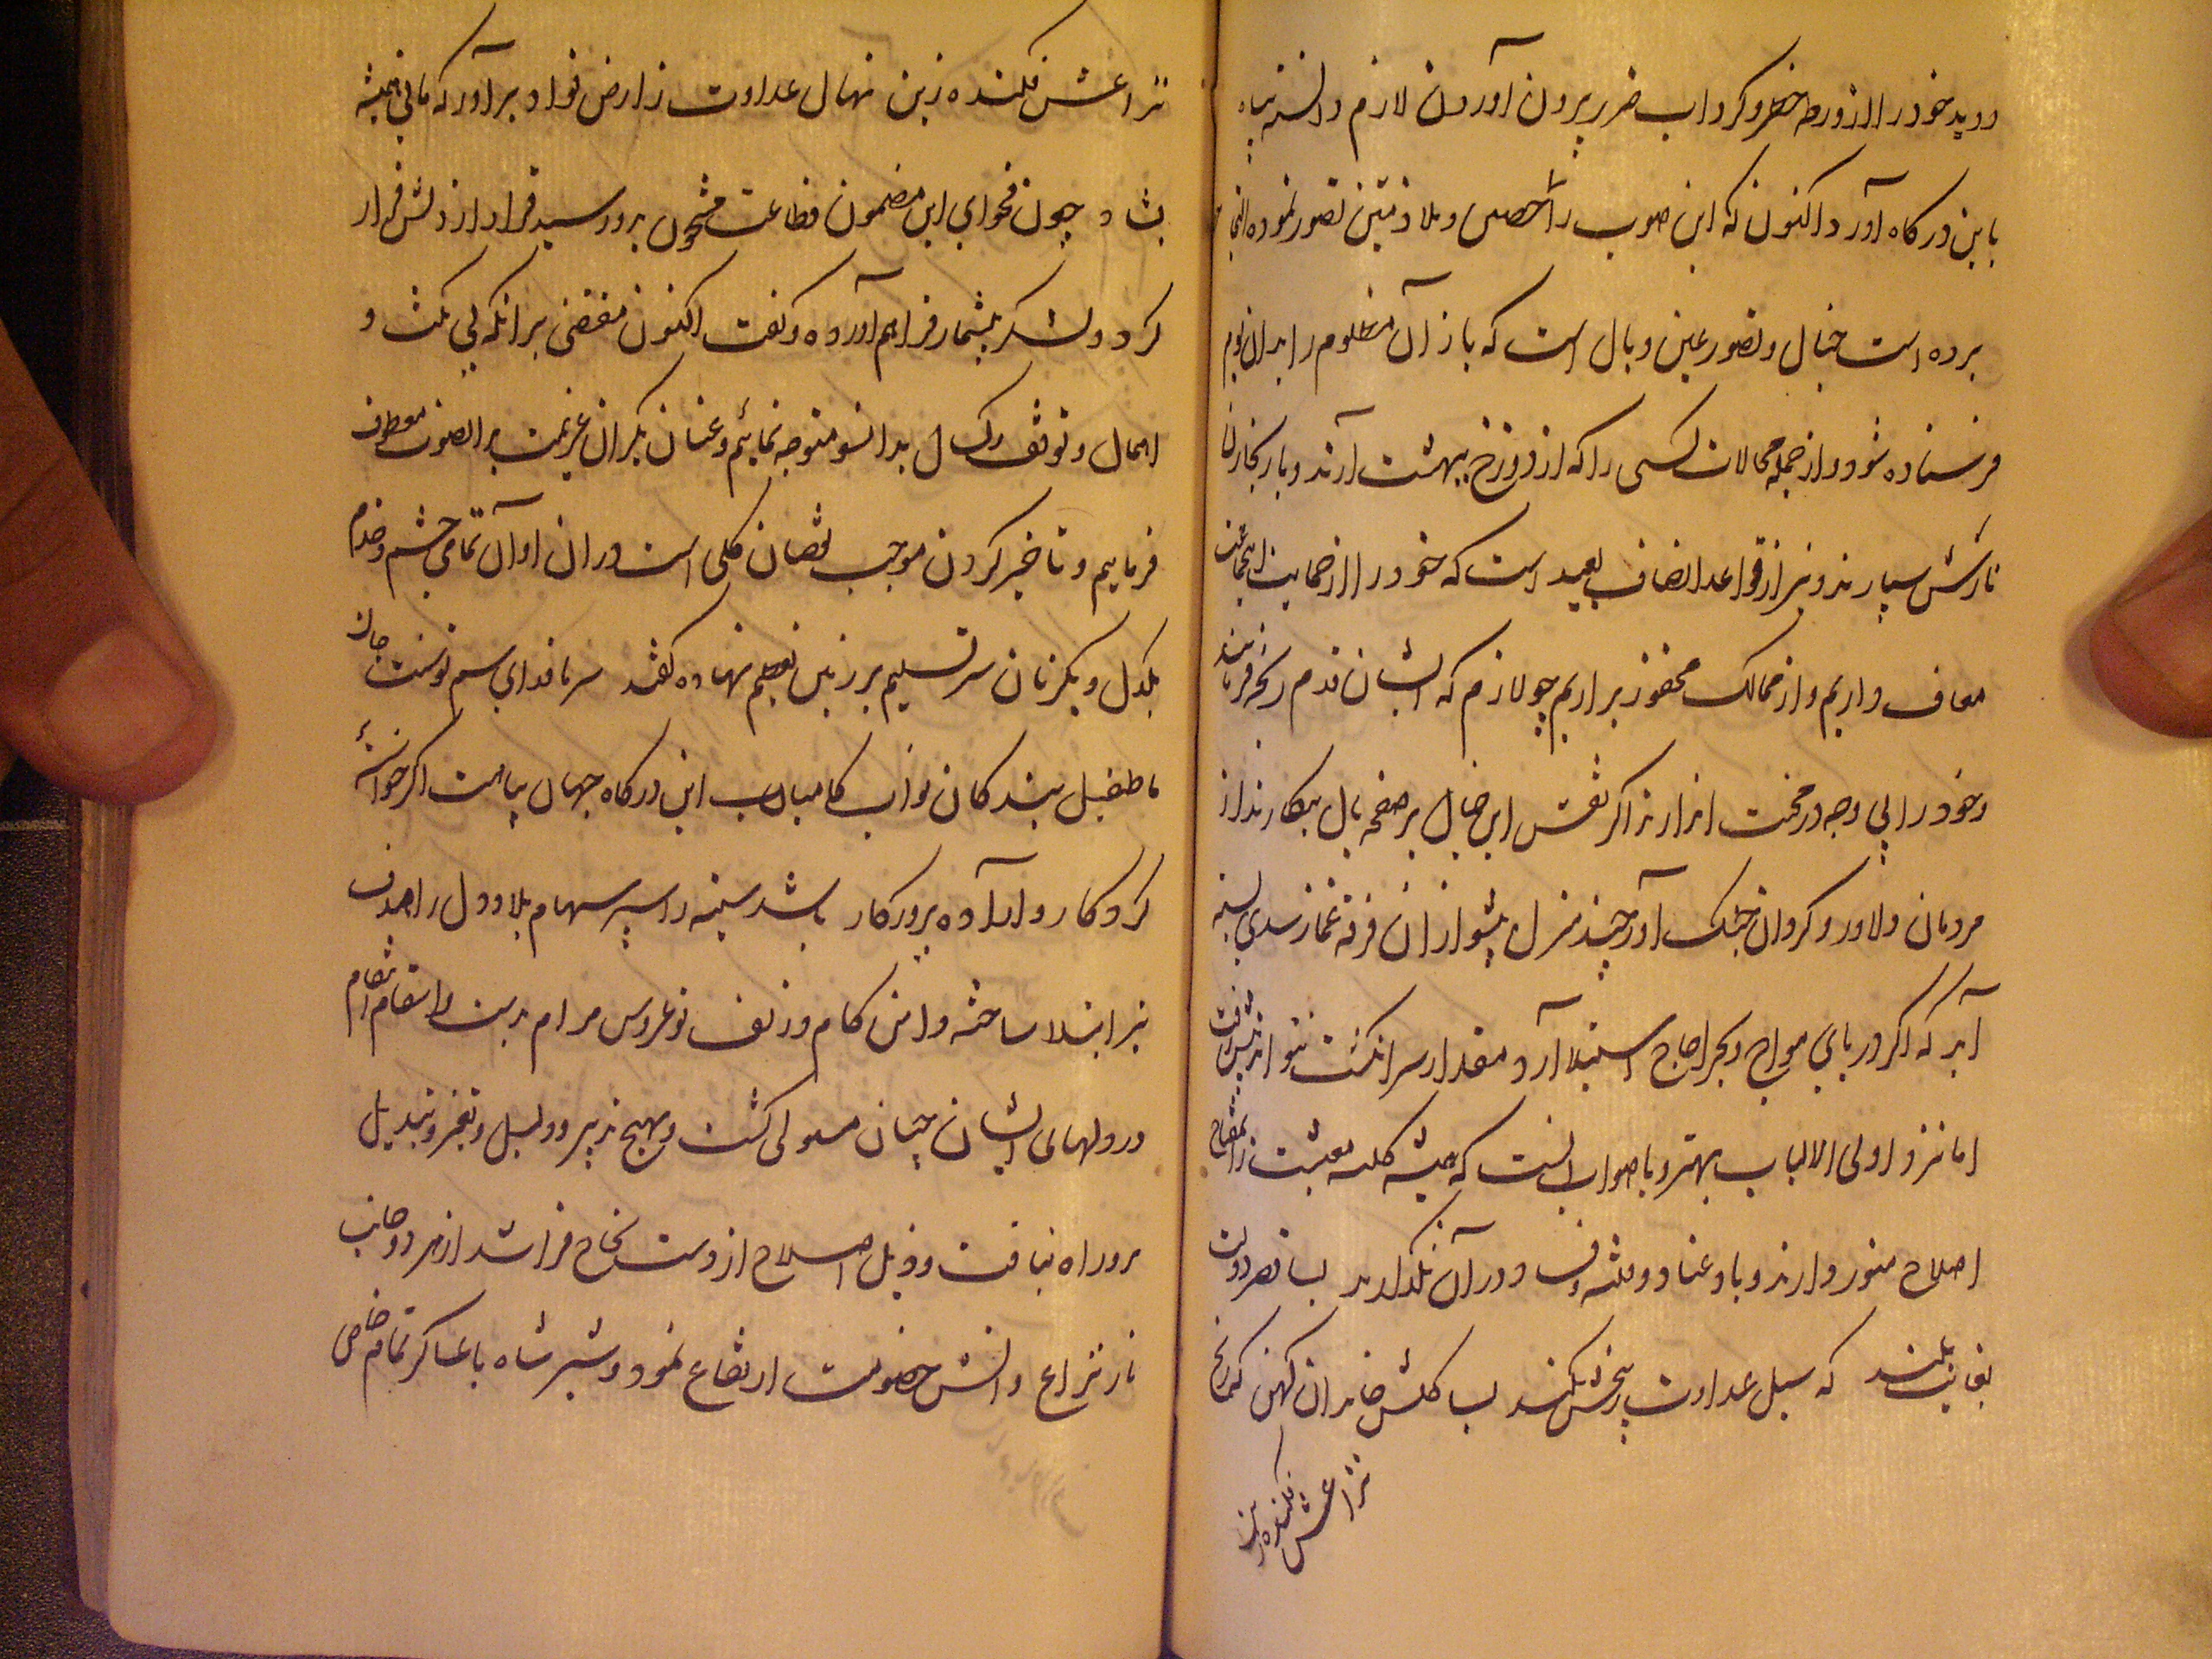 دوید خود را از ورطه خطر و کرداب ضرر بیرون آوردن لازم دانسته پناه
باین درکاه آورد اکنون که این صوب را حصن و ملاذ متین تصور نموده التجا
برده است خیال و تصور عین وبال است که باز آن مظلوم را بدان بوم
فرستاده شود و از جمله محالات کسی را که از دوزخ ببهشت آرند و باز بخازن
نارش سپارند و نیز از قواعد انصاف بعید است که خود را از حمایت
معاف داریم و از ممالک محفوظ براریم چو لازم که ایشان قدم رنجه فرمایند
و خود را بی وجه در محنت اندازند اکر نقش این خیال بر صفحه بال بنکارند از
مردمان دلاور و کردان جنک آور چند منزل پیشواز آن فرقه غماز سدی بسته
آید که اکر دریای مواج و بحر اجاج استیلا آرد مقدار سر انکشت نتواند پیش رفت
اما نزد اولی الالباب بهتر و با صواب انست که همیشه کلبه معیشت را بمصباح
اصلاح منور دارند و باد عناد و فتنه و فساد در آن نکذارند بسا قصر دولت
بغایت بلند که سیل عداوت ز بیخش بکند بسا کلشن خاندان کهن که رنج
نزاعش فکنده ز بن
نزاعش فکنده ز بن نهال عداوت ز ارض فواد برآور که مانی همیشه
بشاد چون فحوای این مضمون فظاعت مشحون بدو رسید قرار از دلش فرار
کرد و لشکر بیشمار فراهم آورده و کفت اکنون مقتضی برانکه بی مکث و
اهمال و توقف و کسل بدانسو متوجه نمائیم و عنان یکران عزیمت بر انصوب معطوف
فرماییم و تاخیر کردن موجب نقصان کلی است در ان اوان تمامی حشم و خدم
یکدل و یکزبان سر تسلیم بر زمین تعظیم نهاده کفتند سر ما فدای سم توسنت جان
ما طفیل بندکان نواب کامیاب این درکاه جهان پناهت اکر خواسته
کردکار و اراده پرورکار باشد سینه را سپر سهام بلا و دل را هدف
تیر ابتلا ساخته دامن کام و زلف نوعروس مرام بدست انتقام
در دلهای ایشان چنان مستولی کشت و بهیچ تدبیر و دلیل و تغیر و تبدیل
بدو راه نیافت و ذیل اصلاح از دست نجاح فراشد از هر دو جانب
نار نزاع و آتش خصومت ارتفاع نمود و شیر شاه با عساکر تمام خاص